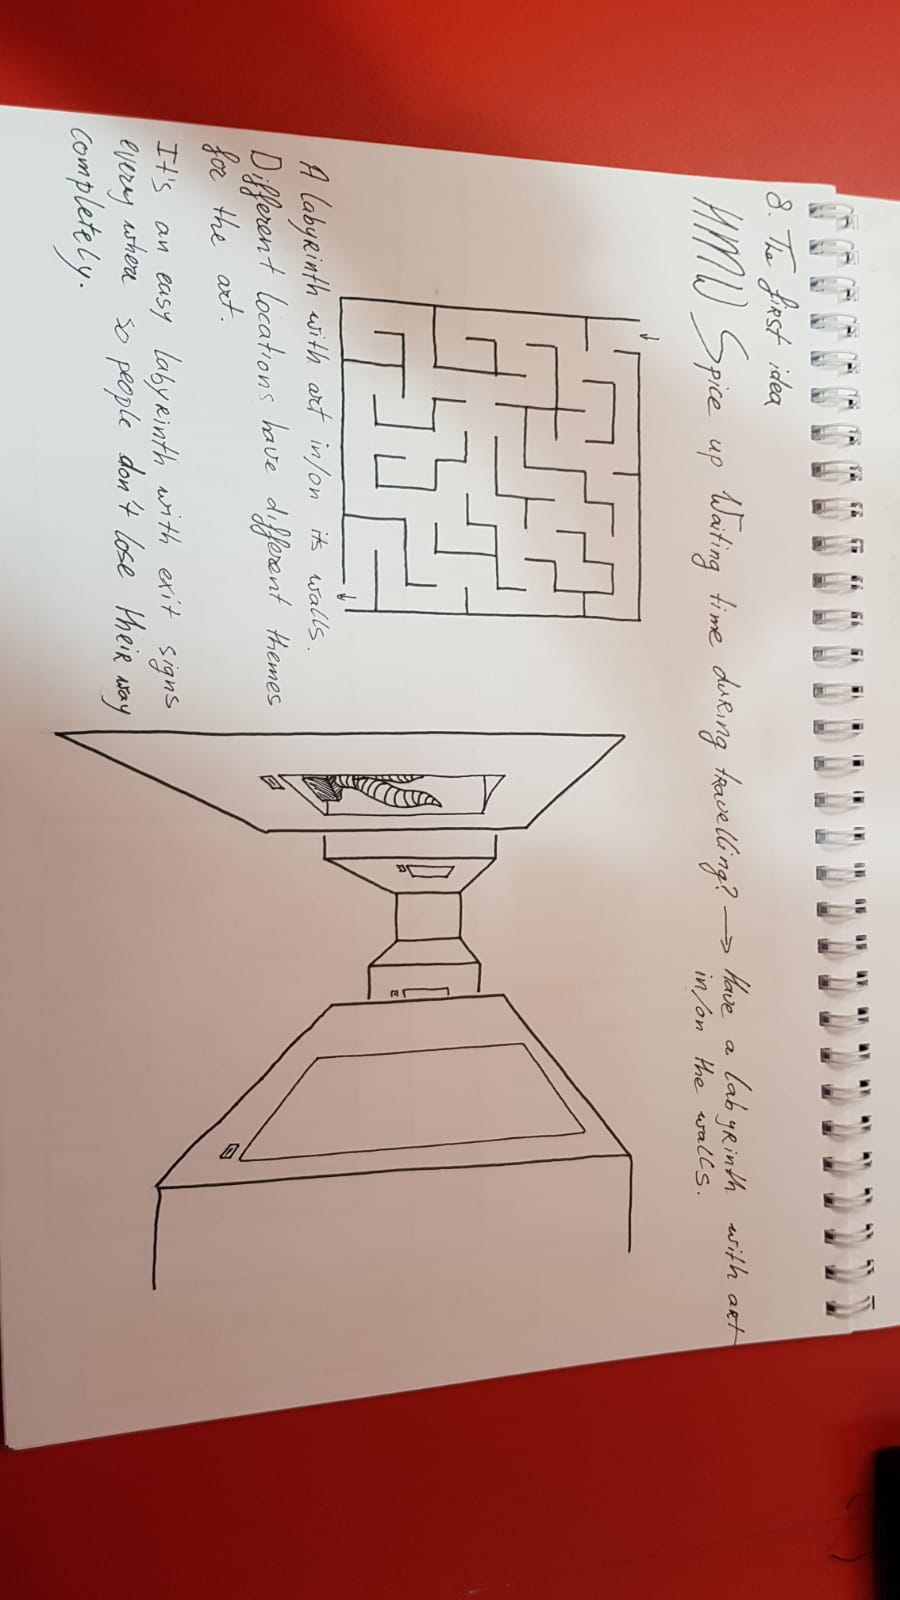 8. The first idea
HMW Spice up Waiting time during travelling? → Have a labyrinth with art
in/on the walls.
A labyrinth with art in/on its walls.
Different locations have different themes
for the art.
It's an easy labyrinth with exit signs
every where so people don't lose their way
completely.